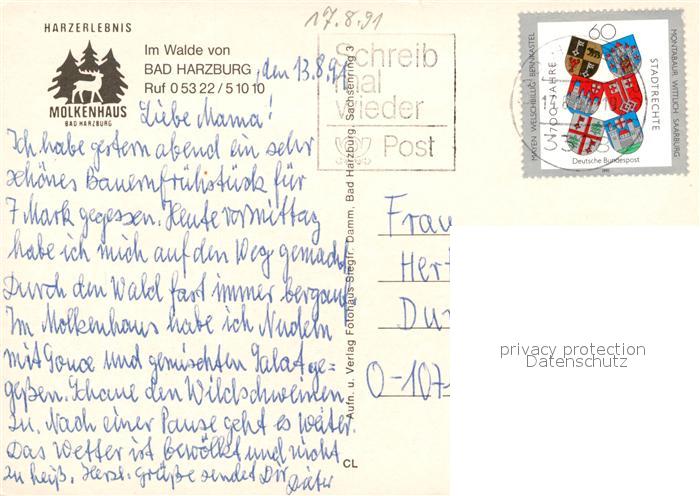 HARZERLEBNIS
MOLKENHAUS
BAD HARZBURG
Im Walde von
BAD HARZBURG, den 13.8.91
Ruf 0 53 22 / 5 10 10
17.8.91
Schreib
mal
wieder
Post
60
MAYEN WELSCHBILLIG BERNKASTEL
700 JAHRE
STADTRECHTE
MONTABAUR WITTLICH SAARBURG
Deutsche Bundespost
1991
Liebe Mama!
Ich habe gestern abend ein sehr
schönes Bauernfrühstück für
7 Mark gegessen. Heute vormittag
habe ich mich auf den Weg gemacht
Durch den Wald fast immer bergauf
Im Molkenhaus habe ich Nudeln
mit Souce und gemischten Salat ge=
geßen. Schaue den Wildschweinen
zu. Nach einer Pause geht es weiter.
Das Wetter ist bewölkt und nicht
zu heiß. Herzl. Grüße sendet Dir
Dieter
Aufn. u. Verlag Fotohaus Siegfr. Damm, Bad Harzburg, Sachsenring 3
CL
Frau
Her
Du
O-107
privacy protection
Datenschutz